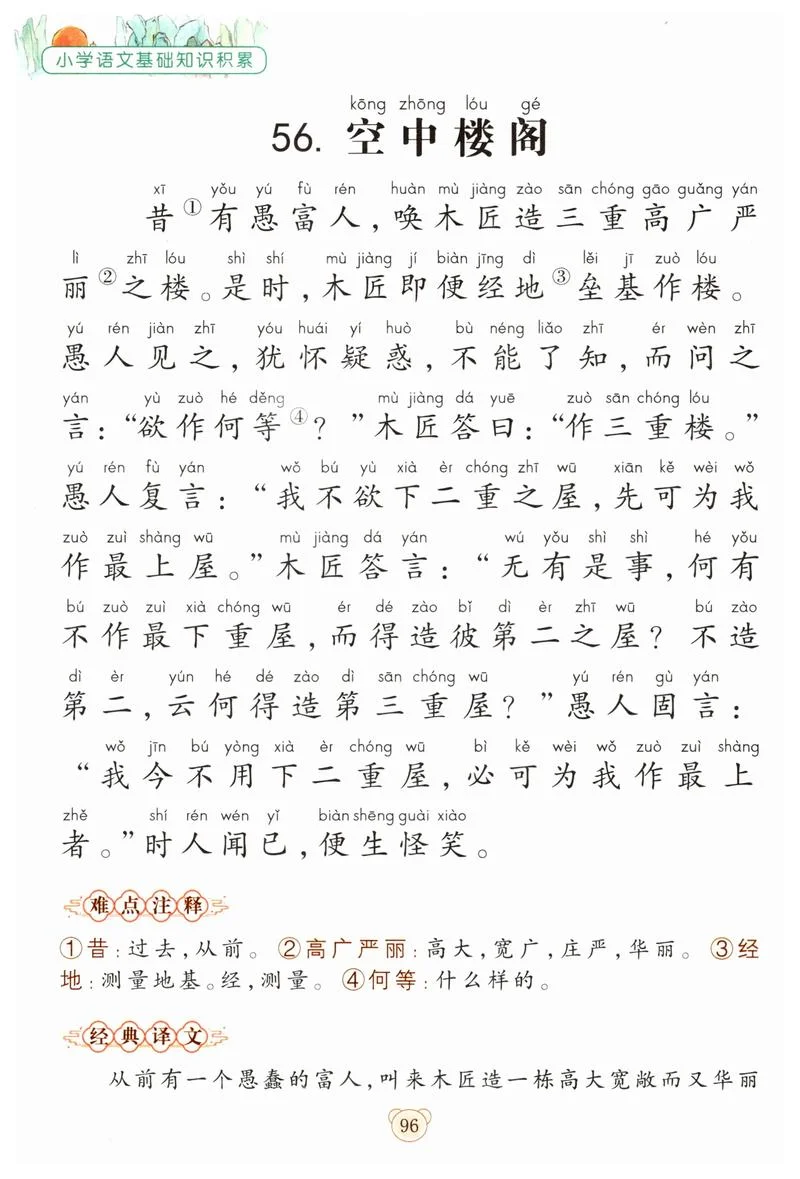 小学语文基础知识积累
kōng zhōng lóu gé
56. 空中楼阁
xī yǒu yú fù rén huàn mù jiàng zào sān chóng gāo guǎng yán
昔①有愚富人,唤木匠造三重高广严
lì zhī lóu shì shí mù jiàng jí biàn jīng dì lěi jī zuò lóu
丽②之楼。是时,木匠即便经地③垒基作楼。
yú rén jiàn zhī yóu huái yí huò bù néng liǎo zhī ér wèn zhī
愚人见之,犹怀疑惑,不能了知,而问之
yán yù zuò hé děng mù jiàng dá yuē zuò sān chóng lóu
言:“欲作何等④?”木匠答曰:“作三重楼。”
yú rén fù yán wǒ bú yù xià èr chóng zhī wū xiān kě wèi wǒ
愚人复言:“我不欲下二重之屋,先可为我
zuò zuì shàng wū mù jiàng dá yán wú yǒu shì shì hé yǒu
作最上屋。”木匠答言:“无有是事,何有
bú zuò zuì xià chóng wū ér dé zào bǐ dì èr zhī wū bú zào
不作最下重屋,而得造彼第二之屋?不造
dì èr yún hé dé zào dì sān chóng wū yú rén gù yán
第二,云何得造第三重屋?”愚人固言:
wǒ jīn bú yòng xià èr chóng wū bì kě wèi wǒ zuò zuì shàng
“我今不用下二重屋,必可为我作最上
zhě shí rén wén yǐ biàn shēng guài xiào
者。”时人闻已,便生怪笑。
难点注释
①昔:过去,从前。 ②高广严丽:高大,宽广,庄严,华丽。 ③经
地:测量地基。经,测量。 ④何等:什么样的。
经典译文
从前有一个愚蠢的富人,叫来木匠造一栋高大宽敞而又华丽
96